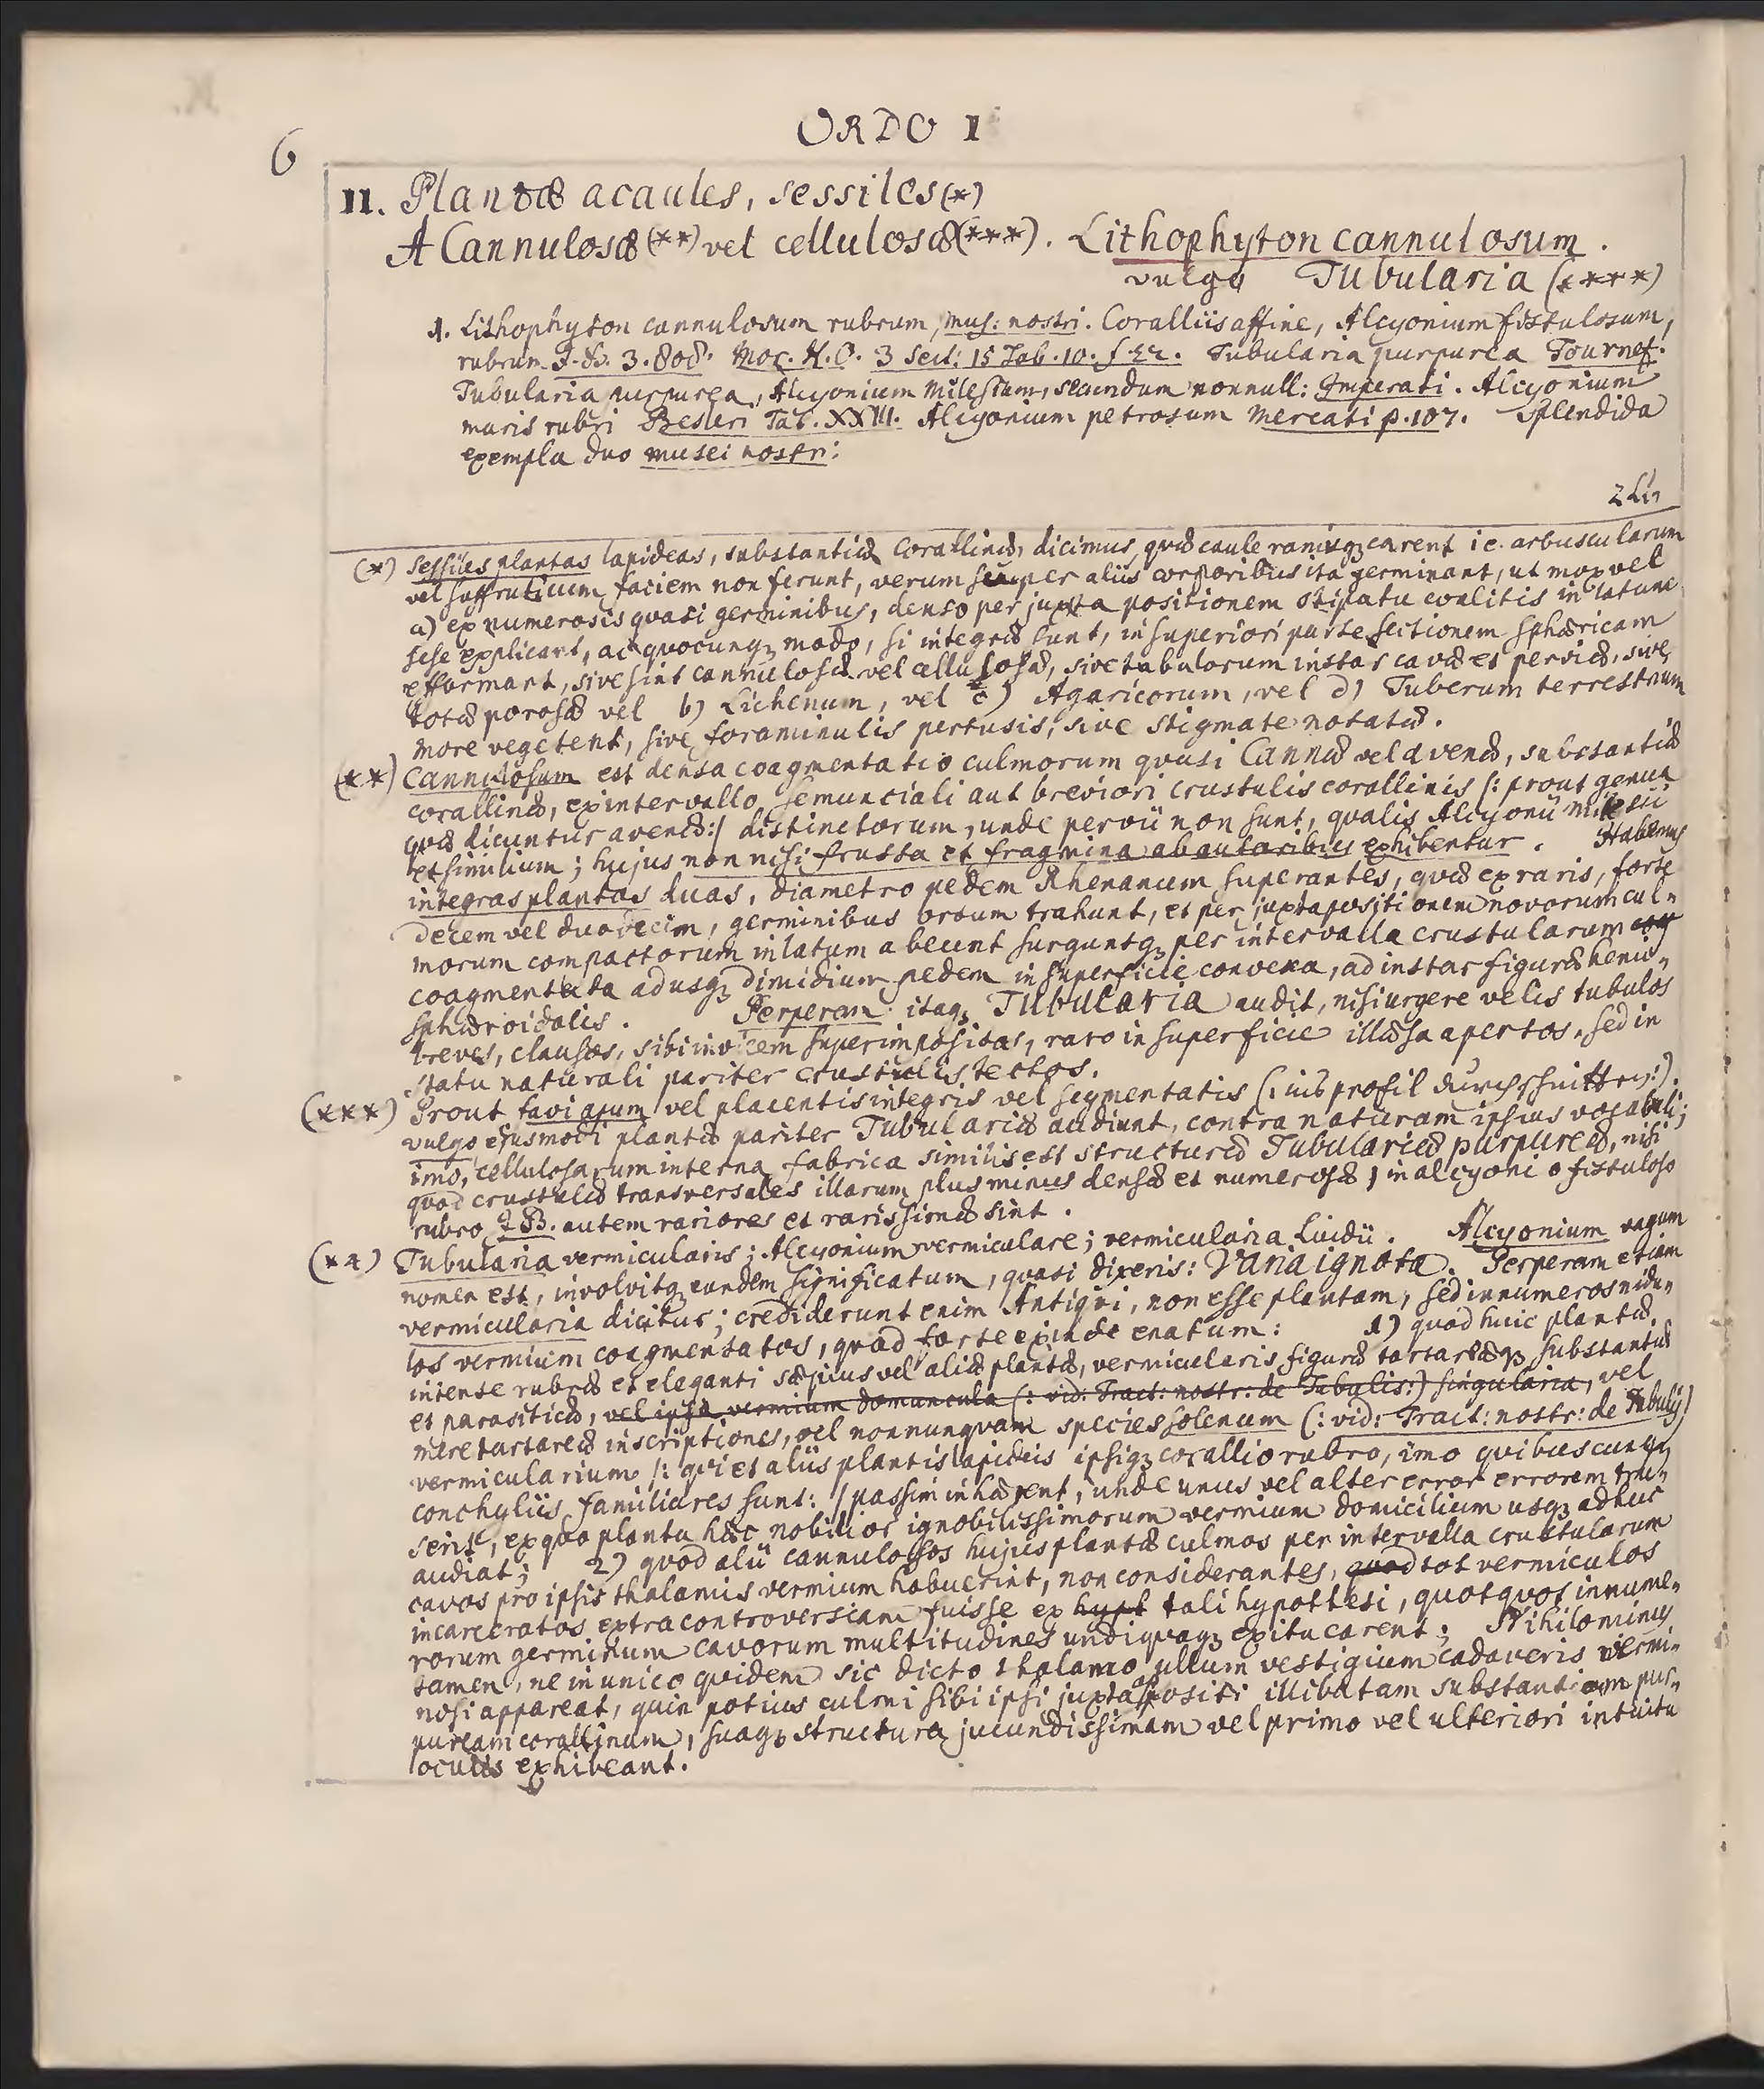 ORDO I
6
II. Plantæ acaules, sessiles (*)
A Cannulosæ (**) vel cellulosæ (***). Lithophyton cannulosum.
vulgo Tubularia (****)
1. Lithophyton cannulosum rubrum, mus: nostri. Coralliis affine, Alcyonium fistulosum,
rubrum I. B. 3. 808. Mor. H. O. 3 Sect: 15 Tab. 10. f 22. Tubularia purpurea Tournef.
Tubularia purpurea, Alcyonium Milesium, secundum nonnull: Imperati. Alcyonium
maris rubri Besleri Tab. XXIII. Alcyonium petrosum Mercati p. 107. Splendida
exempla duo musei nostri:
2 Li
(*) Sessiles plantas lapideas, substantiæ Corallinæ, dicimus, quæ caule ramisq; carent i e. arbuscularum
vel suffruticum faciem non ferunt, verum semper aliis corporibus ita germinant, ut mox vel
a) ex numerosis quasi germinibus, denso per juxta positionem stipatu coalitis in latum
sese explicant, ac quocunq; modo, si integræ sunt, in superiori parte sectionem sphæricam
efformant, sive sint cannulosæ vel cellulosæ, sive tubulorum instar cavæ et perviæ, sive
totæ porosæ vel b) Lichenum, vel c) Agaricorum, vel d) Tuberum terrestrium
more vegetent, sive foraminulis pertusis, sive stigmate notatæ.
(**) Cannulosum est densa coagmentatio culmorum quasi Cannæ vel avenæ, substantiæ
corallinæ, ex intervallo semunciali aut breviori crustulis corallinis |: prout genua
quæ dicuntur avenæ :| distinctorum, unde pervii non sunt, qualis Alcyonii Milesii
et similium; hujus non nisi frusta et fragmina ab autoribus exhibentur. Habemus
integras plantas duas, diametro pedem Rhenanum superantes, quæ ex raris, forte
decem vel duodecim, germinibus ortum trahunt, et per juxtapositionem novorum cul-
morum compactorum in latum abeunt surguntq; per intervalla crustularum coa
coagmentata adusq; dimidium pedem in superficie convexa, ad instar figuræ hemi-
sphæroidalis. Perperam itaq; Tubularia audit, nisi urgere velis tubulos
breves, clausos, sibi invicem superimpositos, raro in superficie illæsa apertos, sed in
statu naturali pariter crustulis tectos.
(***) Prout faviagum vel placentis integris vel segmentatis (: ins profil durchschnitten :).
vulgo ejusmodi plantæ pariter Tubulariæ audiunt, contra naturam ipsius vocabuli;
imo, cellulosarum interna fabrica similis est structuræ Tubulariæ purpureæ, nisi
quod crustulæ transversales illarum plus minus densæ et numerosæ, in alcyonio fistuloso
rubro I B. autem rariores et rarissimæ sint.
(*4) Tubularia vermicularis; Alcyonium vermiculare; vermicularia Luidii. Alcyonium vagum
nomen est, involvitq; eundem significatum, quasi dixeris: Varia ignota. Perperam etiam
vermicularia dicitur; crediderunt enim Antiqvi, non esse plantam, sed innumeros nidu-
los vermium coagmentatos, quod forte exinde enatum: 1) quod huic plantæ
intense rubræ et eleganti sæpius vel aliæ plantæ, vermicularis figuræ tartareæq; substantiæ
et parasiticæ, vel ipsa vermium domuncula (: vid: Tract: nostr: de Tubulis:) singularia, vel
mere tartareæ inscriptiones, vel nonnunquam species solenum (: vid: Tract: nostr: de Tubulis)
vermicularium |: qui et aliis plantis lapideis ipsiq; corallio rubro, imo quibuscunq;
conchyliis, familiares sunt: | passim inhærent, unde unus vel alter error errorem tru-
serit, ex quo planta hæc nobilior ignobilissimorum vermium domicilium usq; adhuc
audiat; 2) quod alii cannulosos hujus plantæ culmos per intervalla crustularum
cavos pro ipsis thalamis vermium habuerint, non considerantes, quod tot vermiculos
incarceratos extra controversiam fuisse ex hypt tali hypothesi, quotquot innume-
rorum germinum cavorum multitudines undiquaq; exitu carent; Nihilominus
tamen, ne in unico quidem sic dicto thalamo ullum vestigium cadaveris vermi-
nosi appareat, quin potius culmi sibi ipsi juxtapositi illibatam substantiam pur-
puream corallinam, suaq; structura jucundissimam vel primo vel ulteriori intuitu
oculis exhibeant.